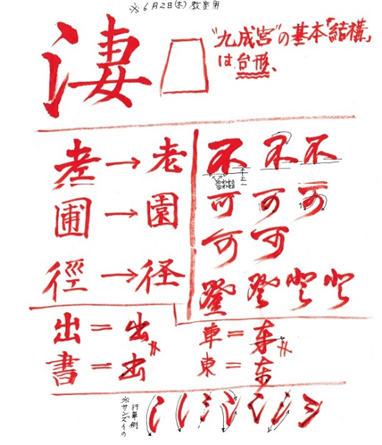 ※6月2日(木)教室用
凄
"九成宮"の基本「結構」
は台形、
老→老
圃→園
徑→径
不不不
可可可
可可
登登登登
出=出
書=出
車=车
東=东
※サンズイの
行草例
氵氵氵氵氵氵